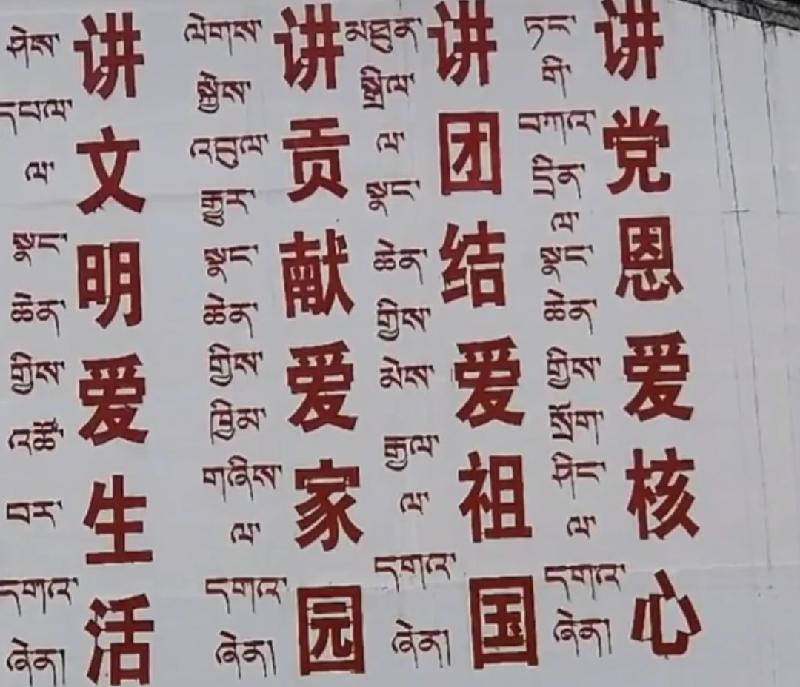 讲党恩爱核心
ཏང་གི་བཀའ་དྲིན་ལ་སྣང་ཆེན་གྱིས་སྲོག་ཤིང་ལ་དགའ་ཞེན།
讲团结爱祖国
མཐུན་སྒྲིལ་ལ་སྣང་ཆེན་གྱིས་མེས་རྒྱལ་ལ་དགའ་ཞེན།
讲贡献爱家园
ལེགས་སྐྱེས་འབུལ་རྒྱུར་སྣང་ཆེན་གྱིས་ཁྱིམ་གཞིས་ལ་དགའ་ཞེན།
讲文明爱生活
ཤེས་དཔལ་ལ་སྣང་ཆེན་གྱིས་འཚོ་བར་དགའ་ཞེན།